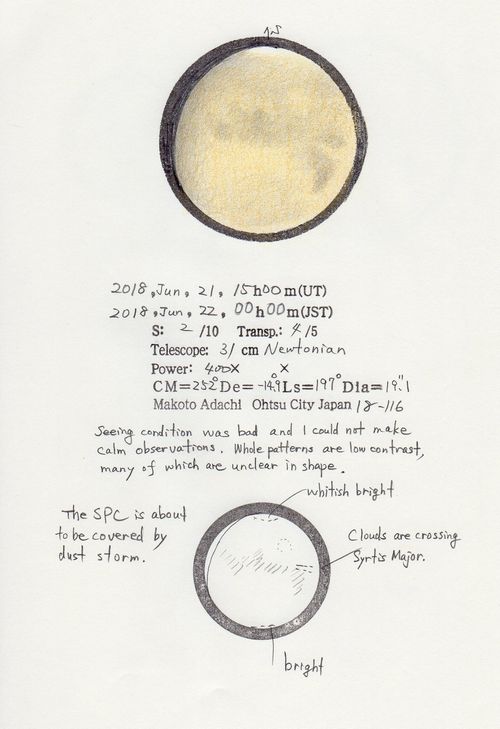 ↑S
2018, Jun, 21, 15h00m(UT)
2018, Jun, 22, 00h00m(JST)
S: 2 /10 Transp.: 4 /5
Telescope: 31 cm Newtonian
Power: 400X X
CM=252° De= -14.9° Ls=197° Dia=19".1
Makoto Adachi Ohtsu City Japan 18-116
Seeing condition was bad and I could not make
calm observations. Whole patterns are low contrast,
many of which are unclear in shape.
whitish bright
The SPC is about
to be covered by
dust storm.
Clouds are crossing
Syrtis Major.
bright